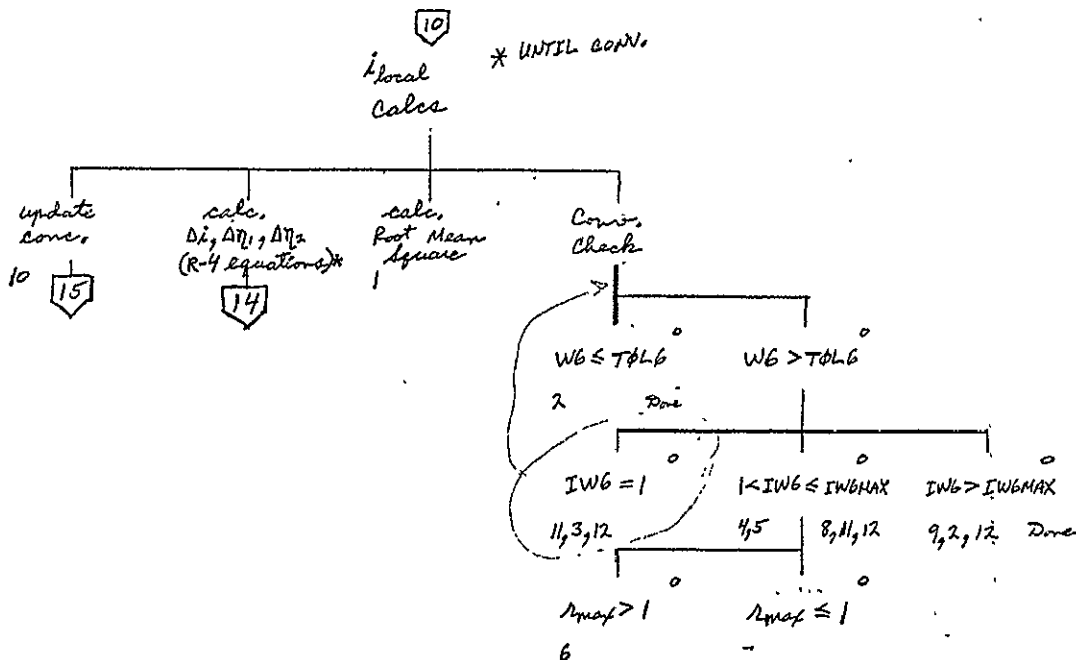 10
* UNTIL CONV.
i local
Calcs
update
conc.
10
15
calc.
Δi, Δη1, Δη2
(R-4 equations)*
14
calc.
Root Mean
Square
1
Conv.
Check
W6 ≤ TØL6 o
2 Done
W6 > TØL6 o
IW6 = 1 o
11,3,12
1<IW6 ≤ IW6MAX o
4,5 8,11,12
IW6 > IW6MAX o
9,2,12 Done
rmax > 1 o
6
rmax ≤ 1 o